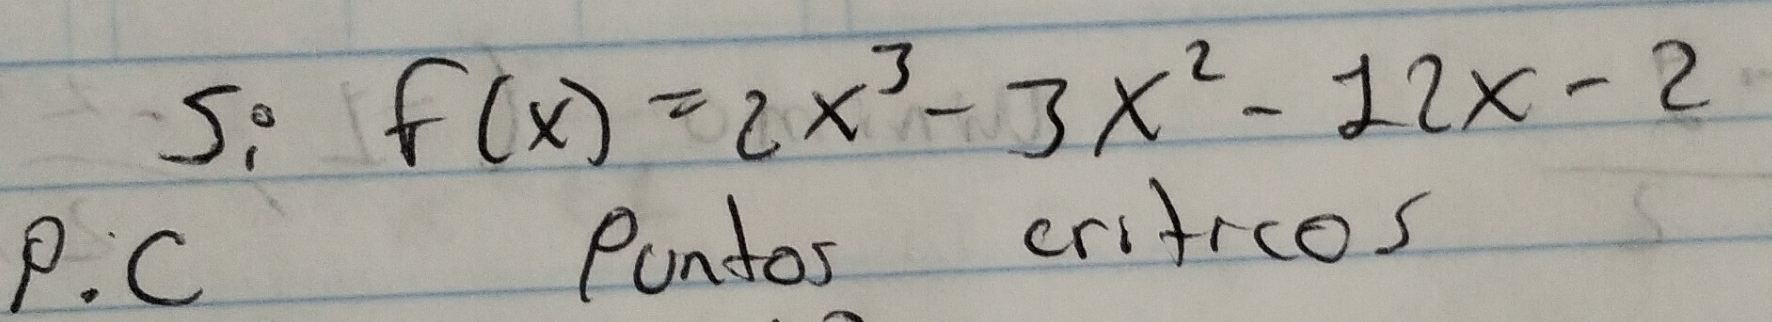 Si f(x) = 2x³ - 3x² - 12x - 2
P.C Puntos criticos